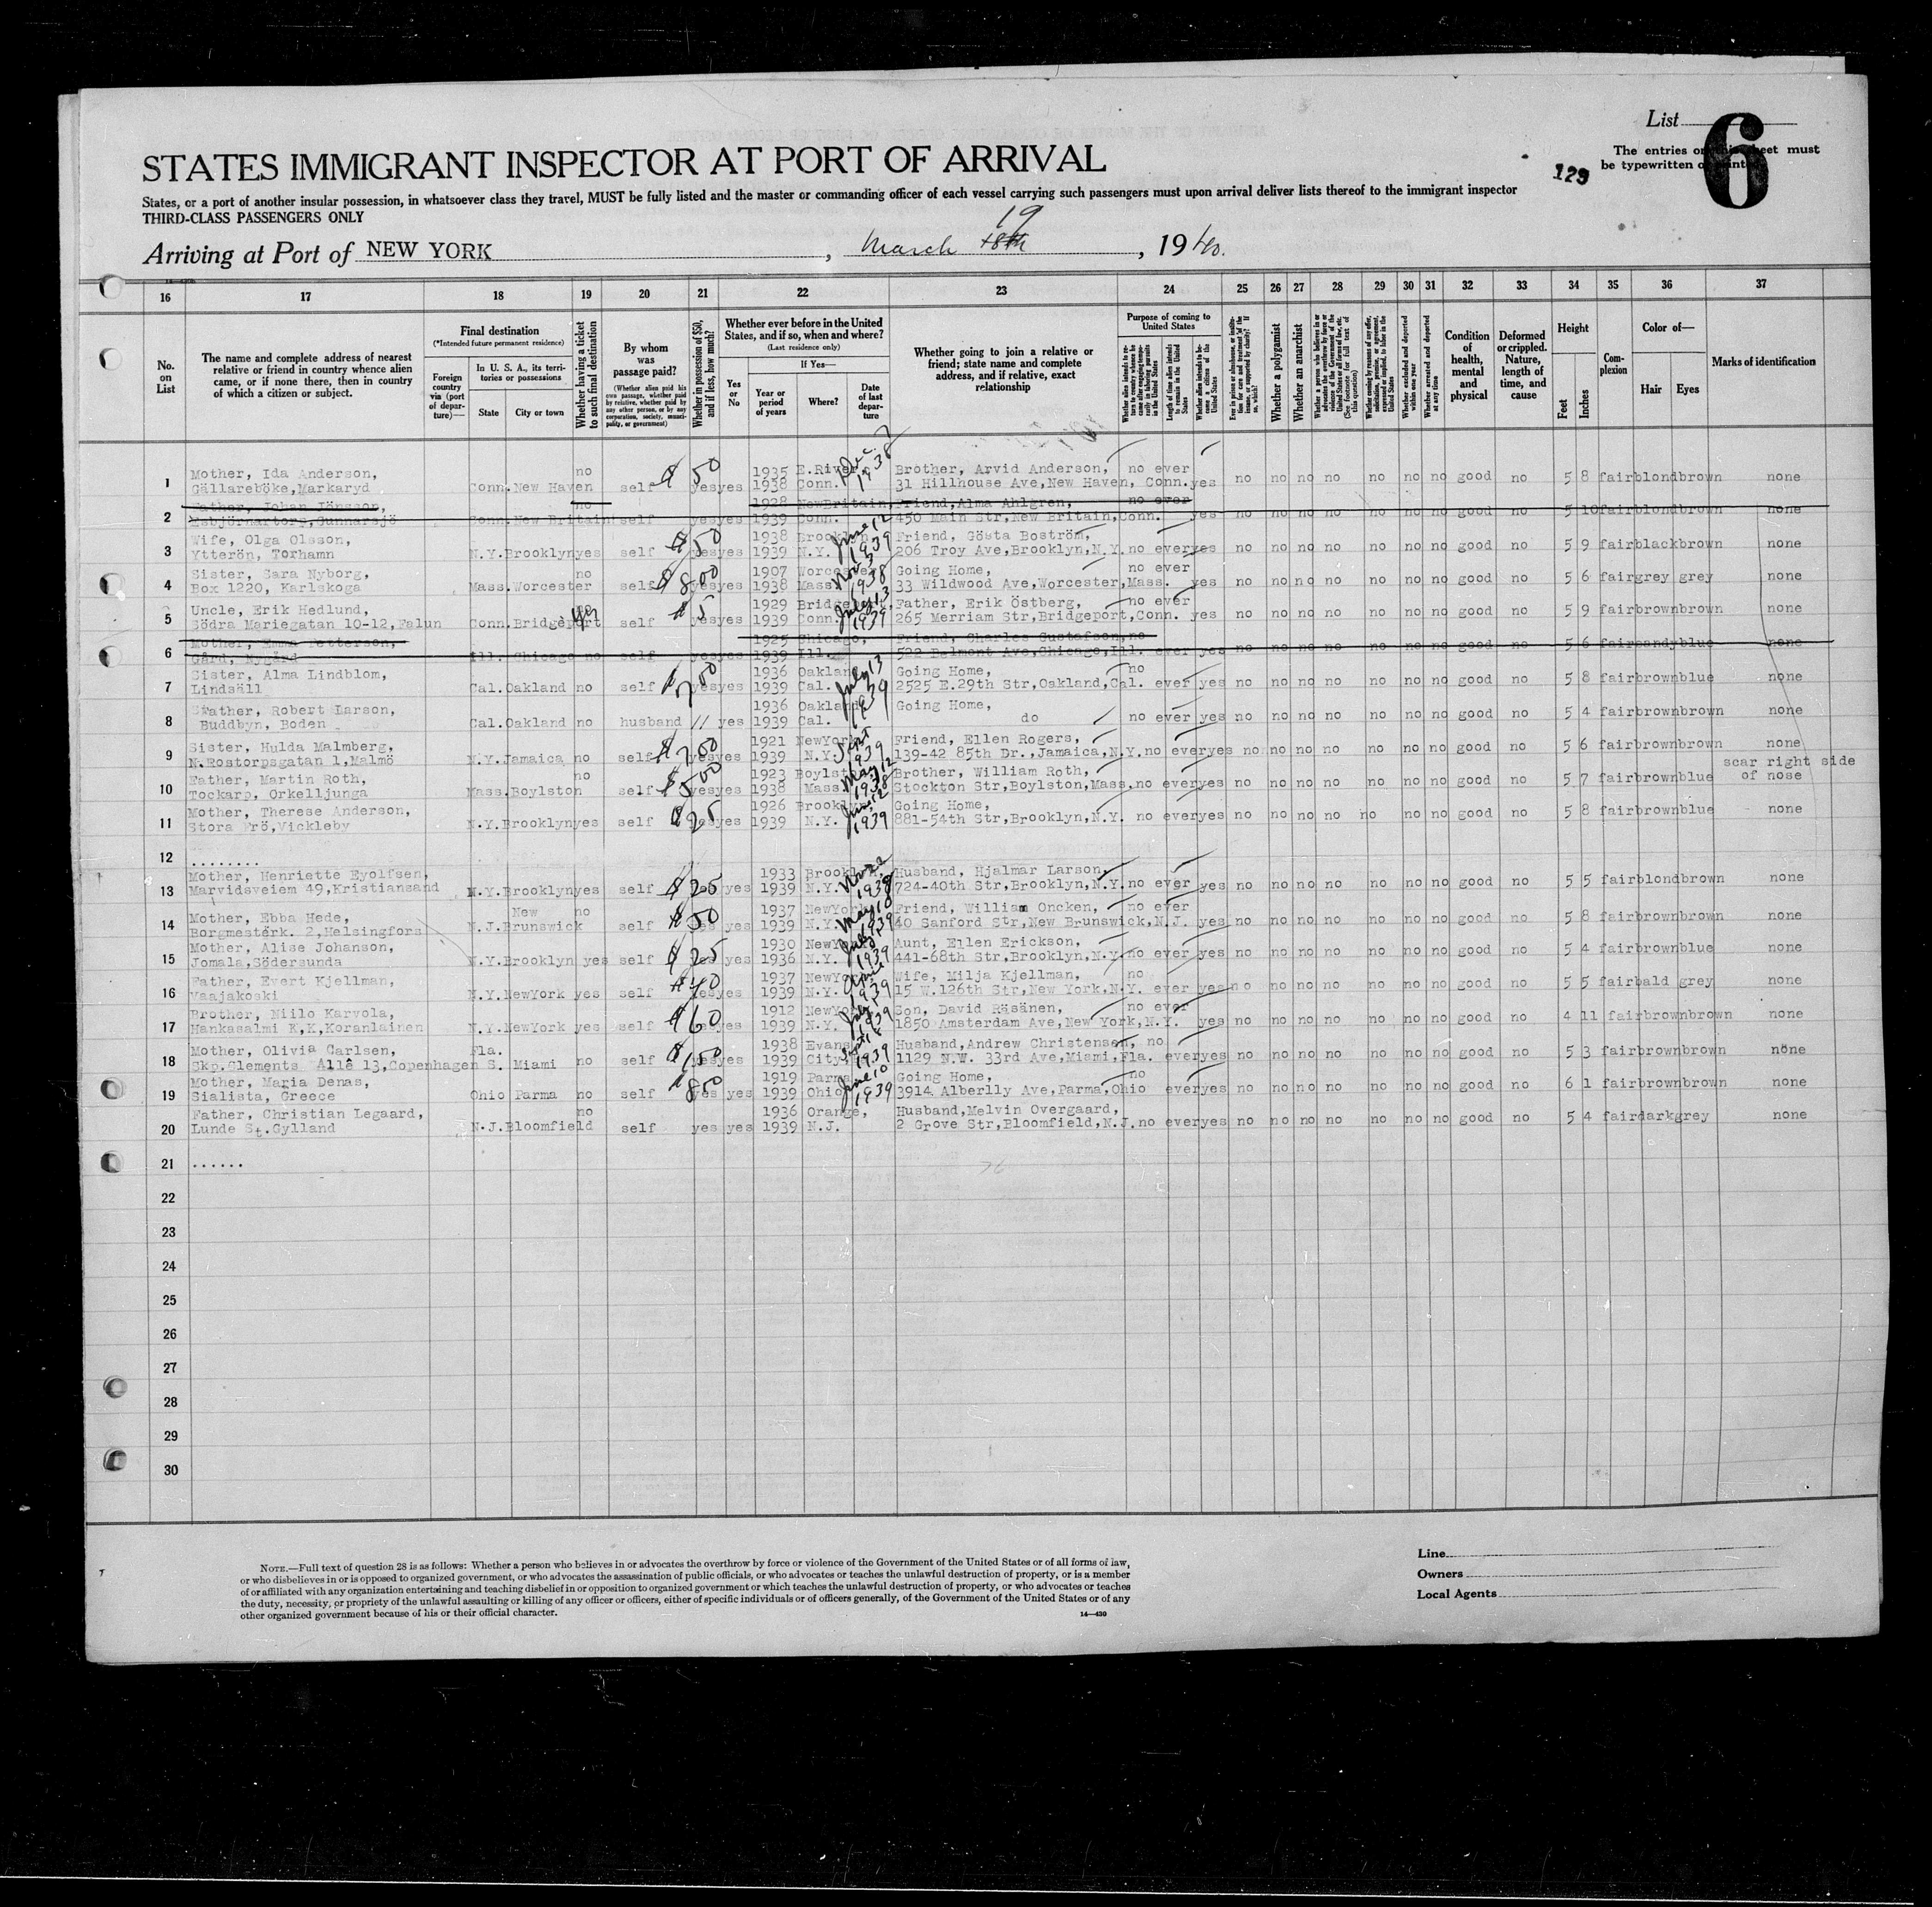 List
6
The entries on this sheet must
be typewritten or printed
129
STATES IMMIGRANT INSPECTOR AT PORT OF ARRIVAL
States, or a port of another insular possession, in whatsoever class they travel, MUST be fully listed and the master or commanding officer of each vessel carrying such passengers must upon arrival deliver lists thereof to the immigrant inspector
THIRD-CLASS PASSENGERS ONLY
Arriving at Port of NEW YORK, March 18th 19, 1940.
16 17 18 19 20 21 22 23 24 25 26 27 28 29 30 31 32 33 34 35 36 37
No. on List
The name and complete address of nearest relative or friend in country whence alien came, or if none there, then in country of which a citizen or subject.
Final destination
(*Intended future permanent residence)
Foreign country via (port of departure)—
In U. S. A., its territories or possessions
State
City or town
Whether having a ticket to such final destination
By whom was passage paid?
(Whether alien paid his own passage, whether paid by relative, whether paid by any other person, or by any corporation, society, municipality, or government)
Whether in possession of $50, and if less, how much?
Whether ever before in the United States, and if so, when and where?
(Last residence only)
Yes or No
If Yes—
Year or period of years
Where?
Date of last departure
Whether going to join a relative or friend; state name and complete address, and if relative, exact relationship
Purpose of coming to United States
Length of time alien intends to remain in the United States
Whether alien intends to become a citizen of the United States
Whether a polygamist
Whether an anarchist
Whether excluded and deported within one year
Whether arrested and deported at any time
Condition of health, mental and physical
Deformed or crippled. Nature, length of time, and cause
Height
Feet
Inches
Complexion
Color of—
Hair
Eyes
Marks of identification
Mother, Ida Anderson, no $50 1935 E.River Dec. Brother, Arvid Anderson, no ever
1 Gällareböke,Markaryd Conn. New Haven self yes yes 1938 Conn. 1938 31 Hillhouse Ave, New Haven, Conn. yes no no no no no no no good no 5 8 fair blond brown none
Father, Johan Jönsson, no 1928 NewBritain, Friend, Alma Ahlgren, no ever
2 Esbjörnartorp,Gunnarsjö Conn. New Britain self yes yes 1939 Conn. 450 Main Str,New Britain,Conn. yes no no no no no no no good no 5 10 fair blond brown none
Wife, Olga Olsson, $50 1938 Brooklyn June 12 Friend, Gösta Boström,
3 Ytterön, Torhamn N.Y. Brooklyn yes self yes yes 1939 N.Y. 1939 206 Troy Ave,Brooklyn,N.Y. no ever yes no no no no no no no good no 5 9 fair black brown none
Sister, Sara Nyborg, no $800 1907 Worcester Nov 3 Going Home, no ever
4 Box 1220, Karlskoga Mass. Worcester self yes yes 1938 Mass. 1938 33 Wildwood Ave,Worcester,Mass. yes no no no no no no no good no 5 6 fair grey grey none
Uncle, Erik Hedlund, $5 1929 Bridgeport July 13 Father, Erik Östberg, no ever
5 Södra Mariegatan 10-12,Falun Conn. Bridgeport yes self yes yes 1939 Conn. 1939 265 Merriam Str,Bridgeport,Conn. yes no no no no no no no good no 5 9 fair brown brown none
Mother, Emma Petterson, 1925 Chicago, Friend, Charles Gustafson, no
6 Gård, Nygård Ill. Chicago no self yes yes 1939 Ill. 522 Belmont Ave,Chicago,Ill. ever yes no no no no no no no good no 5 6 fair sandy blue none
Sister, Alma Lindblom, $700 1936 Oakland July 13 Going Home, no
7 Lindsäll Cal. Oakland no self yes yes 1939 Cal. 39 2525 E.29th Str,Oakland,Cal. ever yes no no no no no no no good no 5 8 fair brown blue none
Father, Robert Larson, 1936 Oakland Going Home,
8 Buddbyn, Boden Cal. Oakland no husband // yes 1939 Cal. do no ever yes no no no no no no no good no 5 4 fair brown brown none
Sister, Hulda Malmberg, $700 1921 NewYork Sept Friend, Ellen Rogers,
9 N.Rostorpsgatan 1,Malmö N.Y. Jamaica no self yes yes 1939 N.Y. 1939 139-42 85th Dr.,Jamaica,N.Y. no ever yes no no no no no no no good no 5 6 fair brown brown none
Father, Martin Roth, no $500 1923 Boylston May 12 Brother, William Roth, scar right side
10 Tockarp, Orkelljunga Mass. Boylston self yes yes 1938 Mass. 1938 Stockton Str,Boylston,Mass. no ever yes no no no no no no no good no 5 7 fair brown blue of nose
Mother, Therese Anderson, $25 1926 Brooklyn June 12 Going Home,
11 Stora Frö,Vickleby N.Y. Brooklyn yes self yes yes 1939 N.Y. 1939 881-54th Str,Brooklyn,N.Y. no ever yes no no no no no no no good no 5 8 fair brown blue none
12 ........
Mother, Henriette Eyolfsen, $25 1933 Brooklyn, Nov 22 Husband, Hjalmar Larson,
13 Marvidsveiem 49,Kristiansand N.Y. Brooklyn yes self yes 1939 N.Y. 1938 724-40th Str,Brooklyn,N.Y. no ever yes no no no no no no no good no 5 5 fair blond brown none
Mother, Ebba Hede, New no $50 1937 NewYork May 18 Friend, William Oncken, no ever
14 Borgmesterk. 2,Helsingfors N.J. Brunswick self yes yes 1939 N.Y. 1939 40 Sanford Str,New Brunswick,N.J. yes no no no no no no no good no 5 8 fair brown brown none
Mother, Alise Johanson, $25 1930 NewYork July Aunt, Ellen Erickson,
15 Jomala,Södersunda N.Y. Brooklyn yes self yes yes 1936 N.Y. 1939 441-68th Str,Brooklyn,N.Y. no ever yes no no no no no no no good no 5 4 fair brown blue none
Father, Evert Kjellman, $40 1937 NewYork June Wife, Milja Kjellman, no
16 Vaajakoski N.Y. NewYork yes self yes yes 1939 N.Y. 1939 15 W.126th Str,New York,N.Y. ever yes no no no no no no no good no 5 5 fair bald grey none
Brother, Niilo Karvola, $60 1912 NewYork July Son, David Räsänen, no ever
17 Hankasalmi K,K,Koranlainen N.Y. NewYork yes self yes yes 1939 N.Y. 1939 1850 Amsterdam Ave,New York,N.Y. yes no no no no no no no good no 4 11 fair brown brown none
Mother, Olivia Carlsen, Fla. $150 1938 Evans Husband, Andrew Christensen, no
18 Skp.Clements Allê 13,Copenhagen S. Miami no self yes yes 1939 City 1939 1129 N.W. 33rd Ave,Miami,Fla. ever yes no no no no no no no good no 5 3 fair brown brown none
Mother, Maria Denas, $850 1919 Parma June 10 Going Home, no
19 Sialista, Greece Ohio Parma no self yes yes 1939 Ohio 1939 3914 Alberlly Ave,Parma,Ohio ever yes no no no no no no no good no 6 1 fair brown brown none
Father, Christian Legaard, no 1936 Orange, Husband,Melvin Overgaard,
20 Lunde St.Gylland N.J. Bloomfield self yes yes 1939 N.J. 2 Grove Str,Bloomfield,N.J. no ever yes no no no no no no no good no 5 4 fair dark grey none
21 ......
22
23
24
25
26
27
28
29
30
NOTE.—Full text of question 28 is as follows: Whether a person who believes in or advocates the overthrow by force or violence of the Government of the United States or of all forms of law,
or who disbelieves in or is opposed to organized government, or who advocates the assassination of public officials, or who advocates or teaches the unlawful destruction of property, or is a member
of or affiliated with any organization entertaining and teaching disbelief in or opposition to organized government or which teaches the unlawful destruction of property, or who advocates or teaches
the duty, necessity, or propriety of the unlawful assaulting or killing of any officer or officers, either of specific individuals or of officers generally, of the Government of the United States or of any
other organized government because of his or their official character.
14—430
Line
Owners
Local Agents